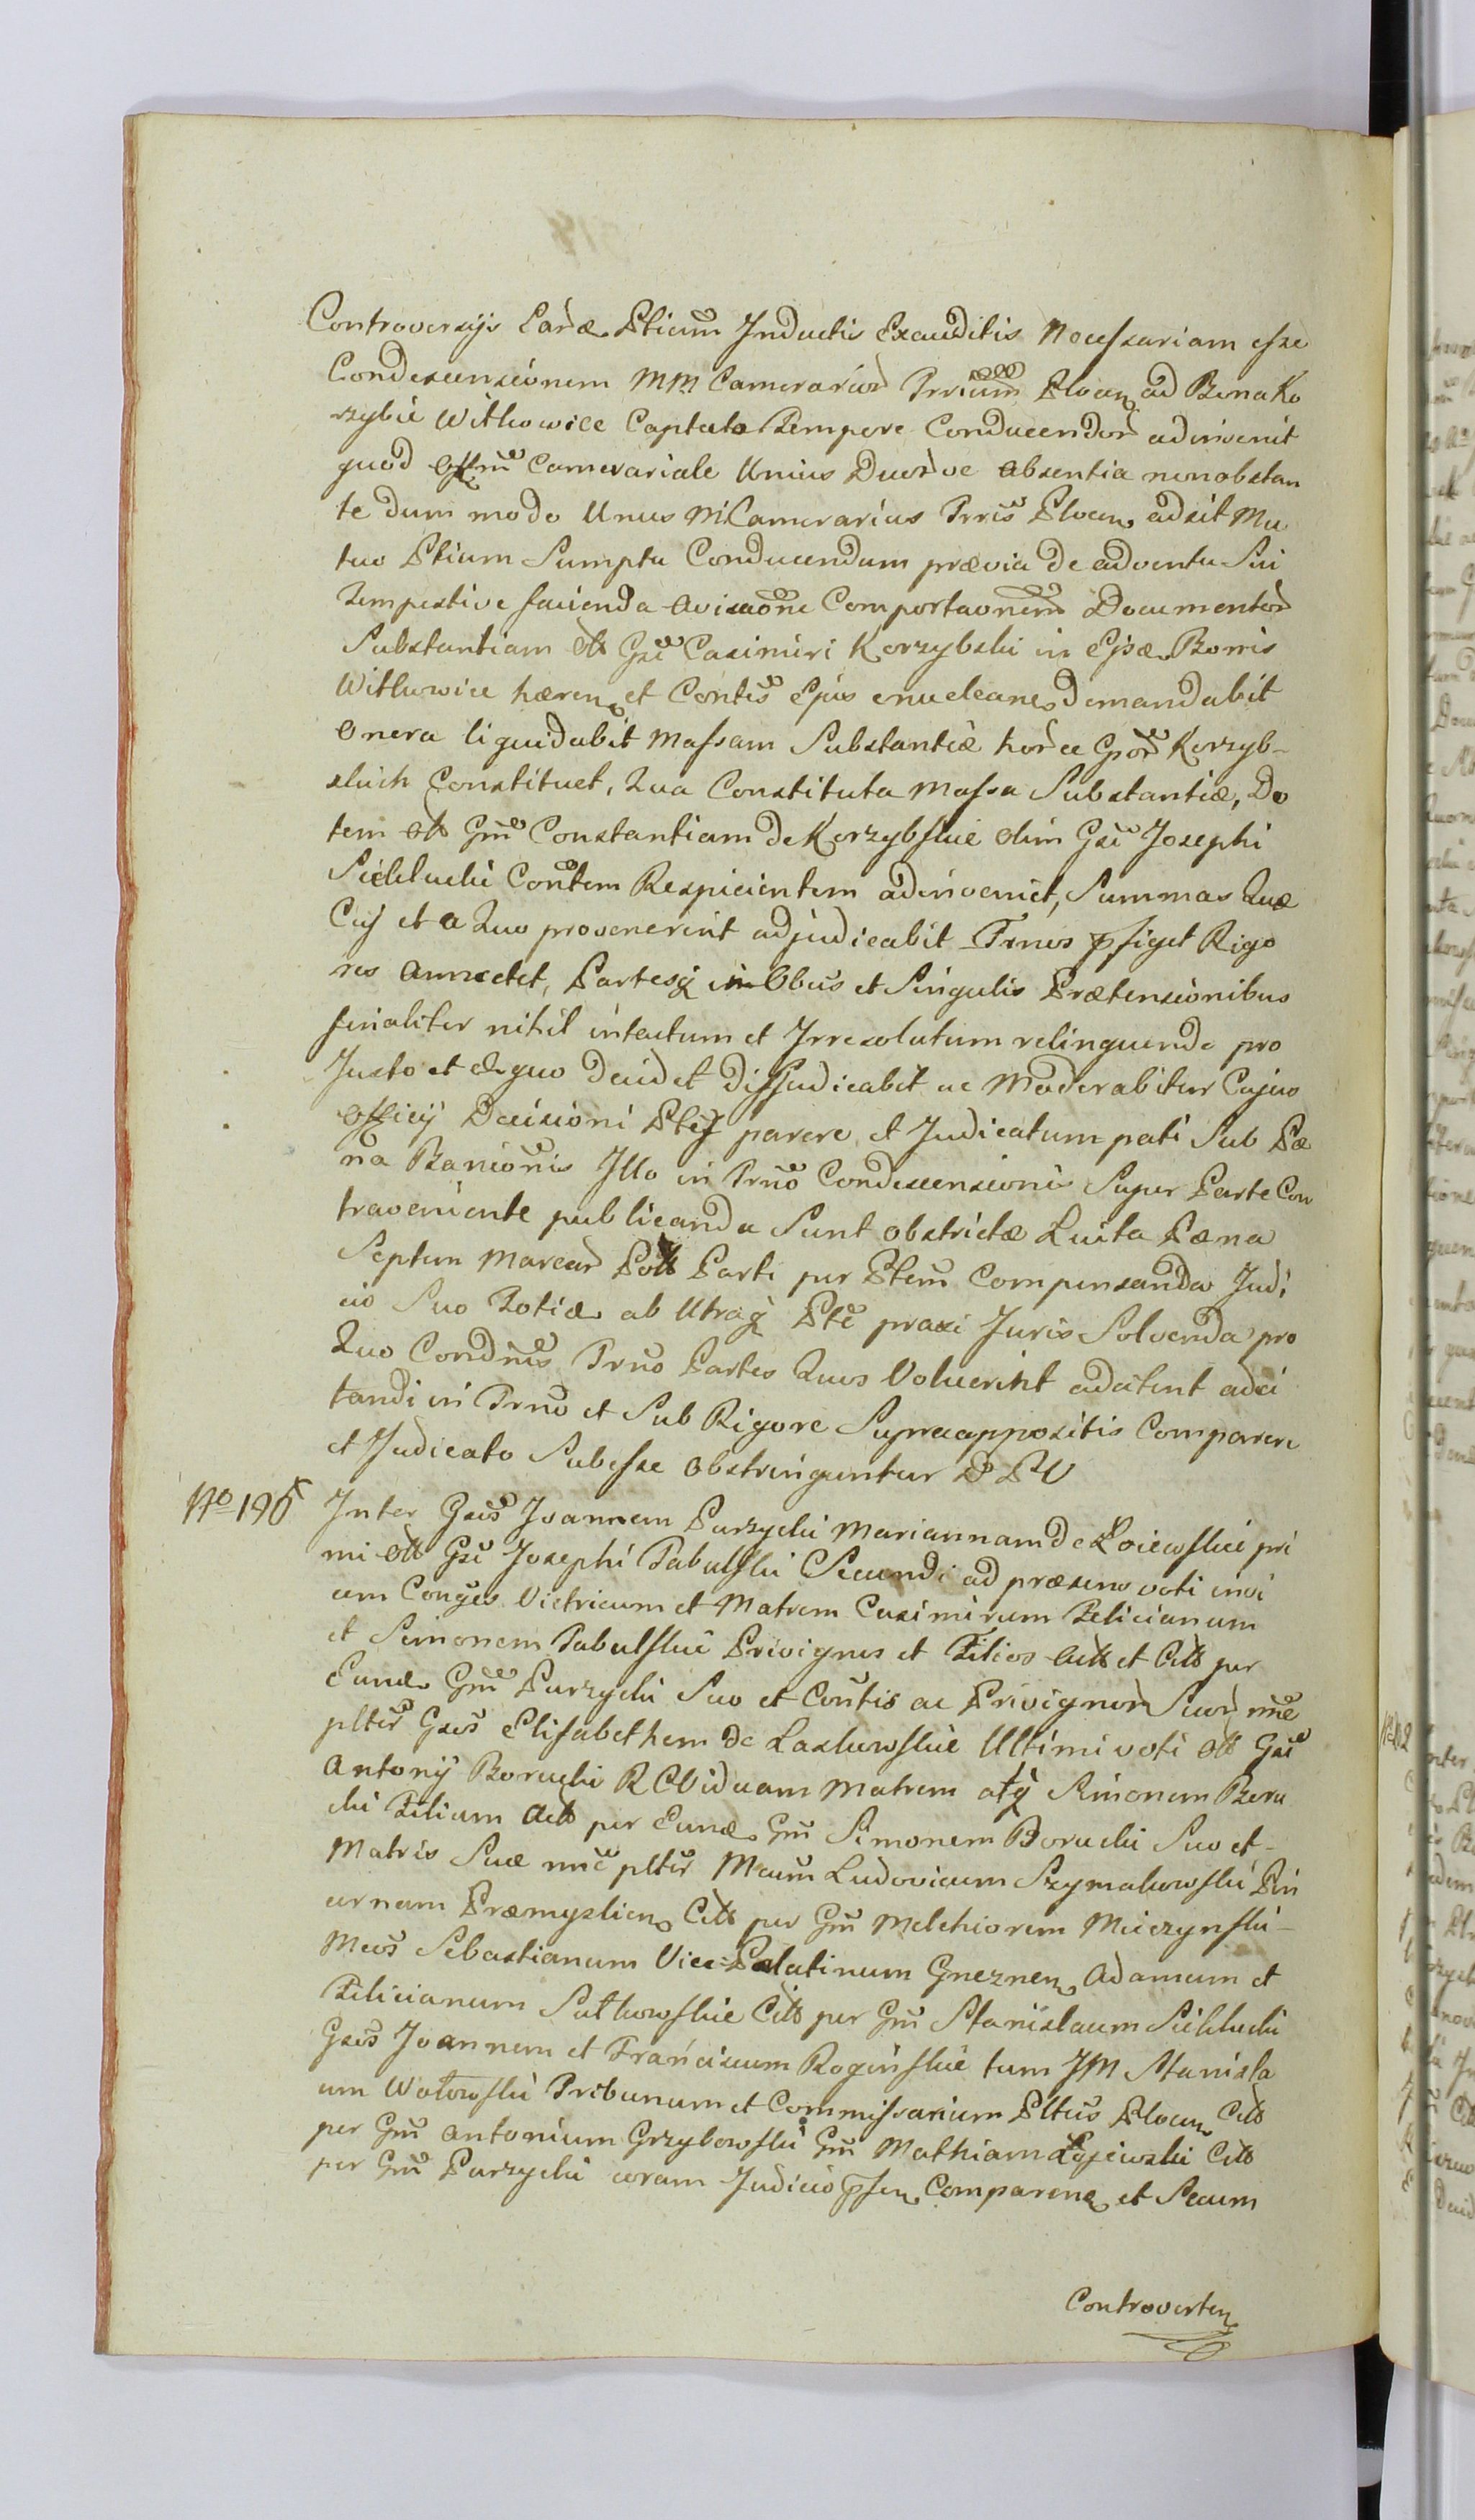 Controversijs Eardē Ptium Inductis Exauditis Necessariam esse
Condescensionem MM Camerarior Trrium Plocen ad Bona Ko
rzybie Witkowice Captato Tempore Conducendor adinvenit
quod Offm Camerariale Unius Duorve absentia nonobstan
te dum modo Unus M Camerarius Trris Plocen adsit Mu
tuo Ptium Sumptu Conducendum prævia de adventu Sui
Tempestive facienda avisaone Comportaonem Documentor
Substantiam olt Gsi Casimiri Korzybski in Ejsdæ Bonis
Witkowice hæren et Contis Ejus enuclean demandabit
Onera liquidabit Massam Substantiæ hordce Gsor Korzyb-
skich Constituet, Qua Constituta Massa Substantiæ, Do
tem olt Gm Constantiam de Korzybskie olim Gsi Josephi
Sieklucki Contem Respicientem adinveniet, Summas Quæ
Cuj et a Quo provenerint adjudicabit Trnos pfiget Rigo
res annectet, Partesq in Obus et Singulis Prætensionibus
finaliter nihil intactum et Irresolutum relinquendo pro
Justo et æquo decidet disjudicabit ac Moderabitur Cujus
Officij Decisioni Ptes parere et Judicatum pati Sub Pæ
na Banionis Illo in Trno Condescensionis Super Parte Con
traveniente publicanda Sunt obstrictæ Luita Pæna
Septem Marcar Polt Parti per Ptem Compensandas Judi
cio Suo Totiæ ab Utraq Pte praxi Juris Solvenda pro
Quo Condnis Trno Partes Quos Voluerint adcitent adci
tandi in Trno et Sub Rigore Supraappositis Comparere
et Judicato Subesse obstringuntur P P V
No 195 Inter Gsos Joannem Purzycki Mariannam de Łoiewskie pri
mi olt Gsi Josephi Tabulski Secundi ad præsens voti invi
cem Conges Vitricum et Matrem Casimirum Felicianum
et Simonem Tabulskie Privignos et Filios Actt et Citt per
Eundæ Gm Purzycki Suo et Contis ac Privignor Suor nne
pltes Gsos Elisabetham de Laskowskie Ultimi voti olt Gsi
Antonij Borucki R C Viduam Matrem atq Simonem Boru
cki Filium Actt per Eundæ Gm Simonem Borucki Suo et
Matris Suæ nne pltes Mcum Ludovicum Szymakowski Pin
cernam Præmyslien Citt per Gm Melchiorem Mieczynski
Mcos Sebastianum Vice Palatinum Gneznen Adamum et
Felicianum Sutkowskie Citt per Gm Stanislaum Sieklucki
Gsos Joannem et Franciscum Roginskie tum JM Stanisla
um Wołowski Tribunum et Commissarium Pltus Plocen Citt
per Gm Antonium Grzybowski Gm Mathiam Łojewski Citt
per Gm Purzycki coram Judicio psen Comparen et Secum
Controverten